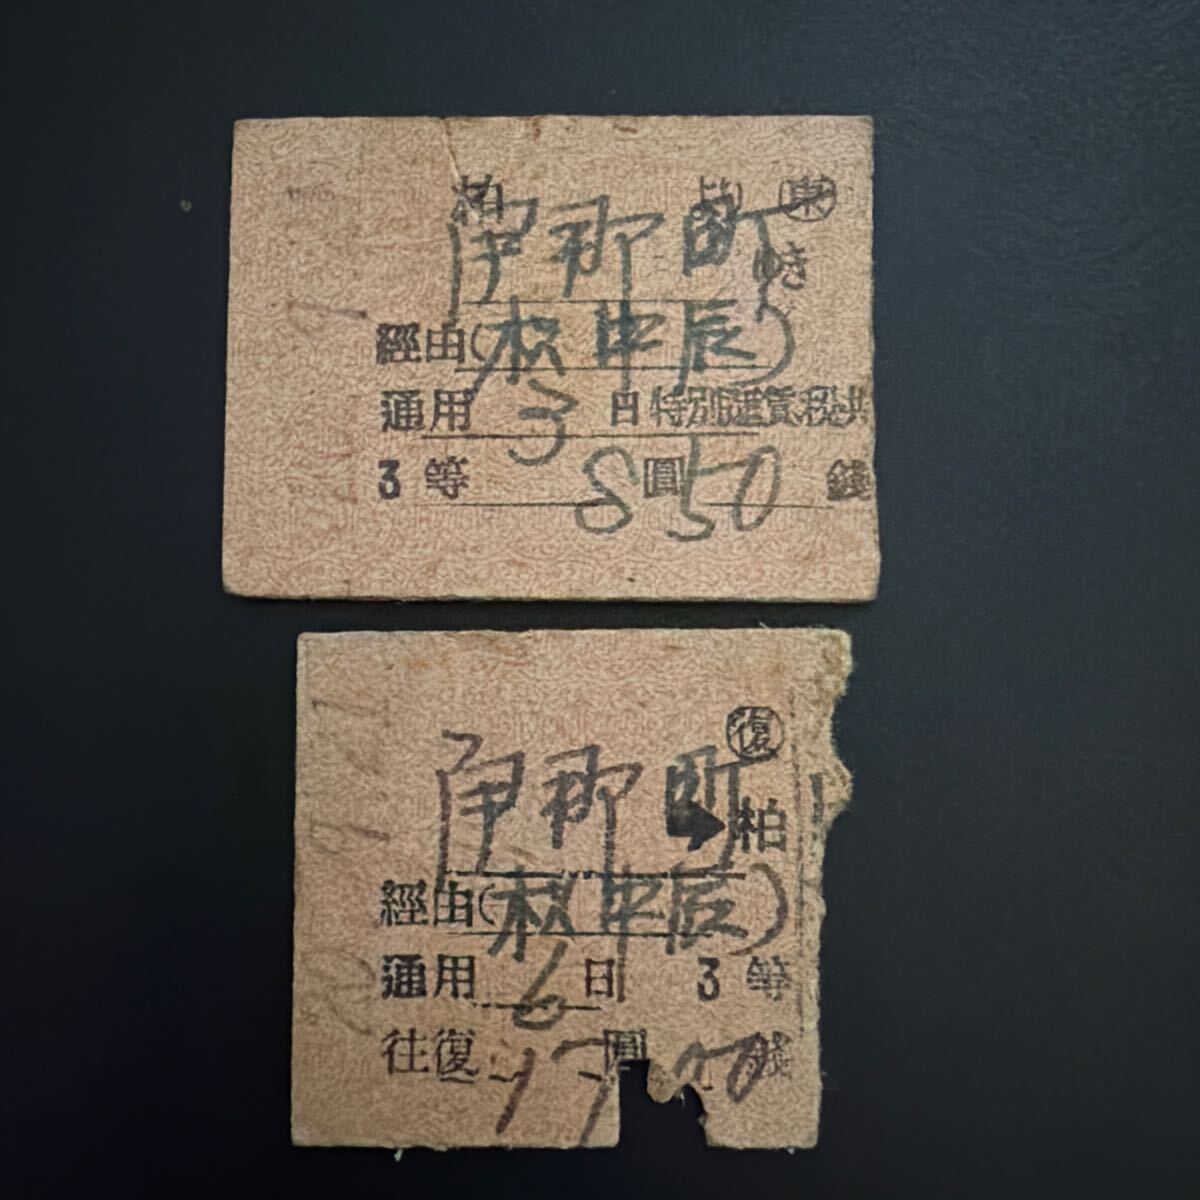 柏 より 東
伊那町 ゆき
經由(松 中 辰)
通用 3 日 特別運賃税共
3等 8 圓 50 錢
復
伊那町 ➡ 柏
經由(松 中 辰)
通用 6 日 3等
往復 17 圓 00 錢